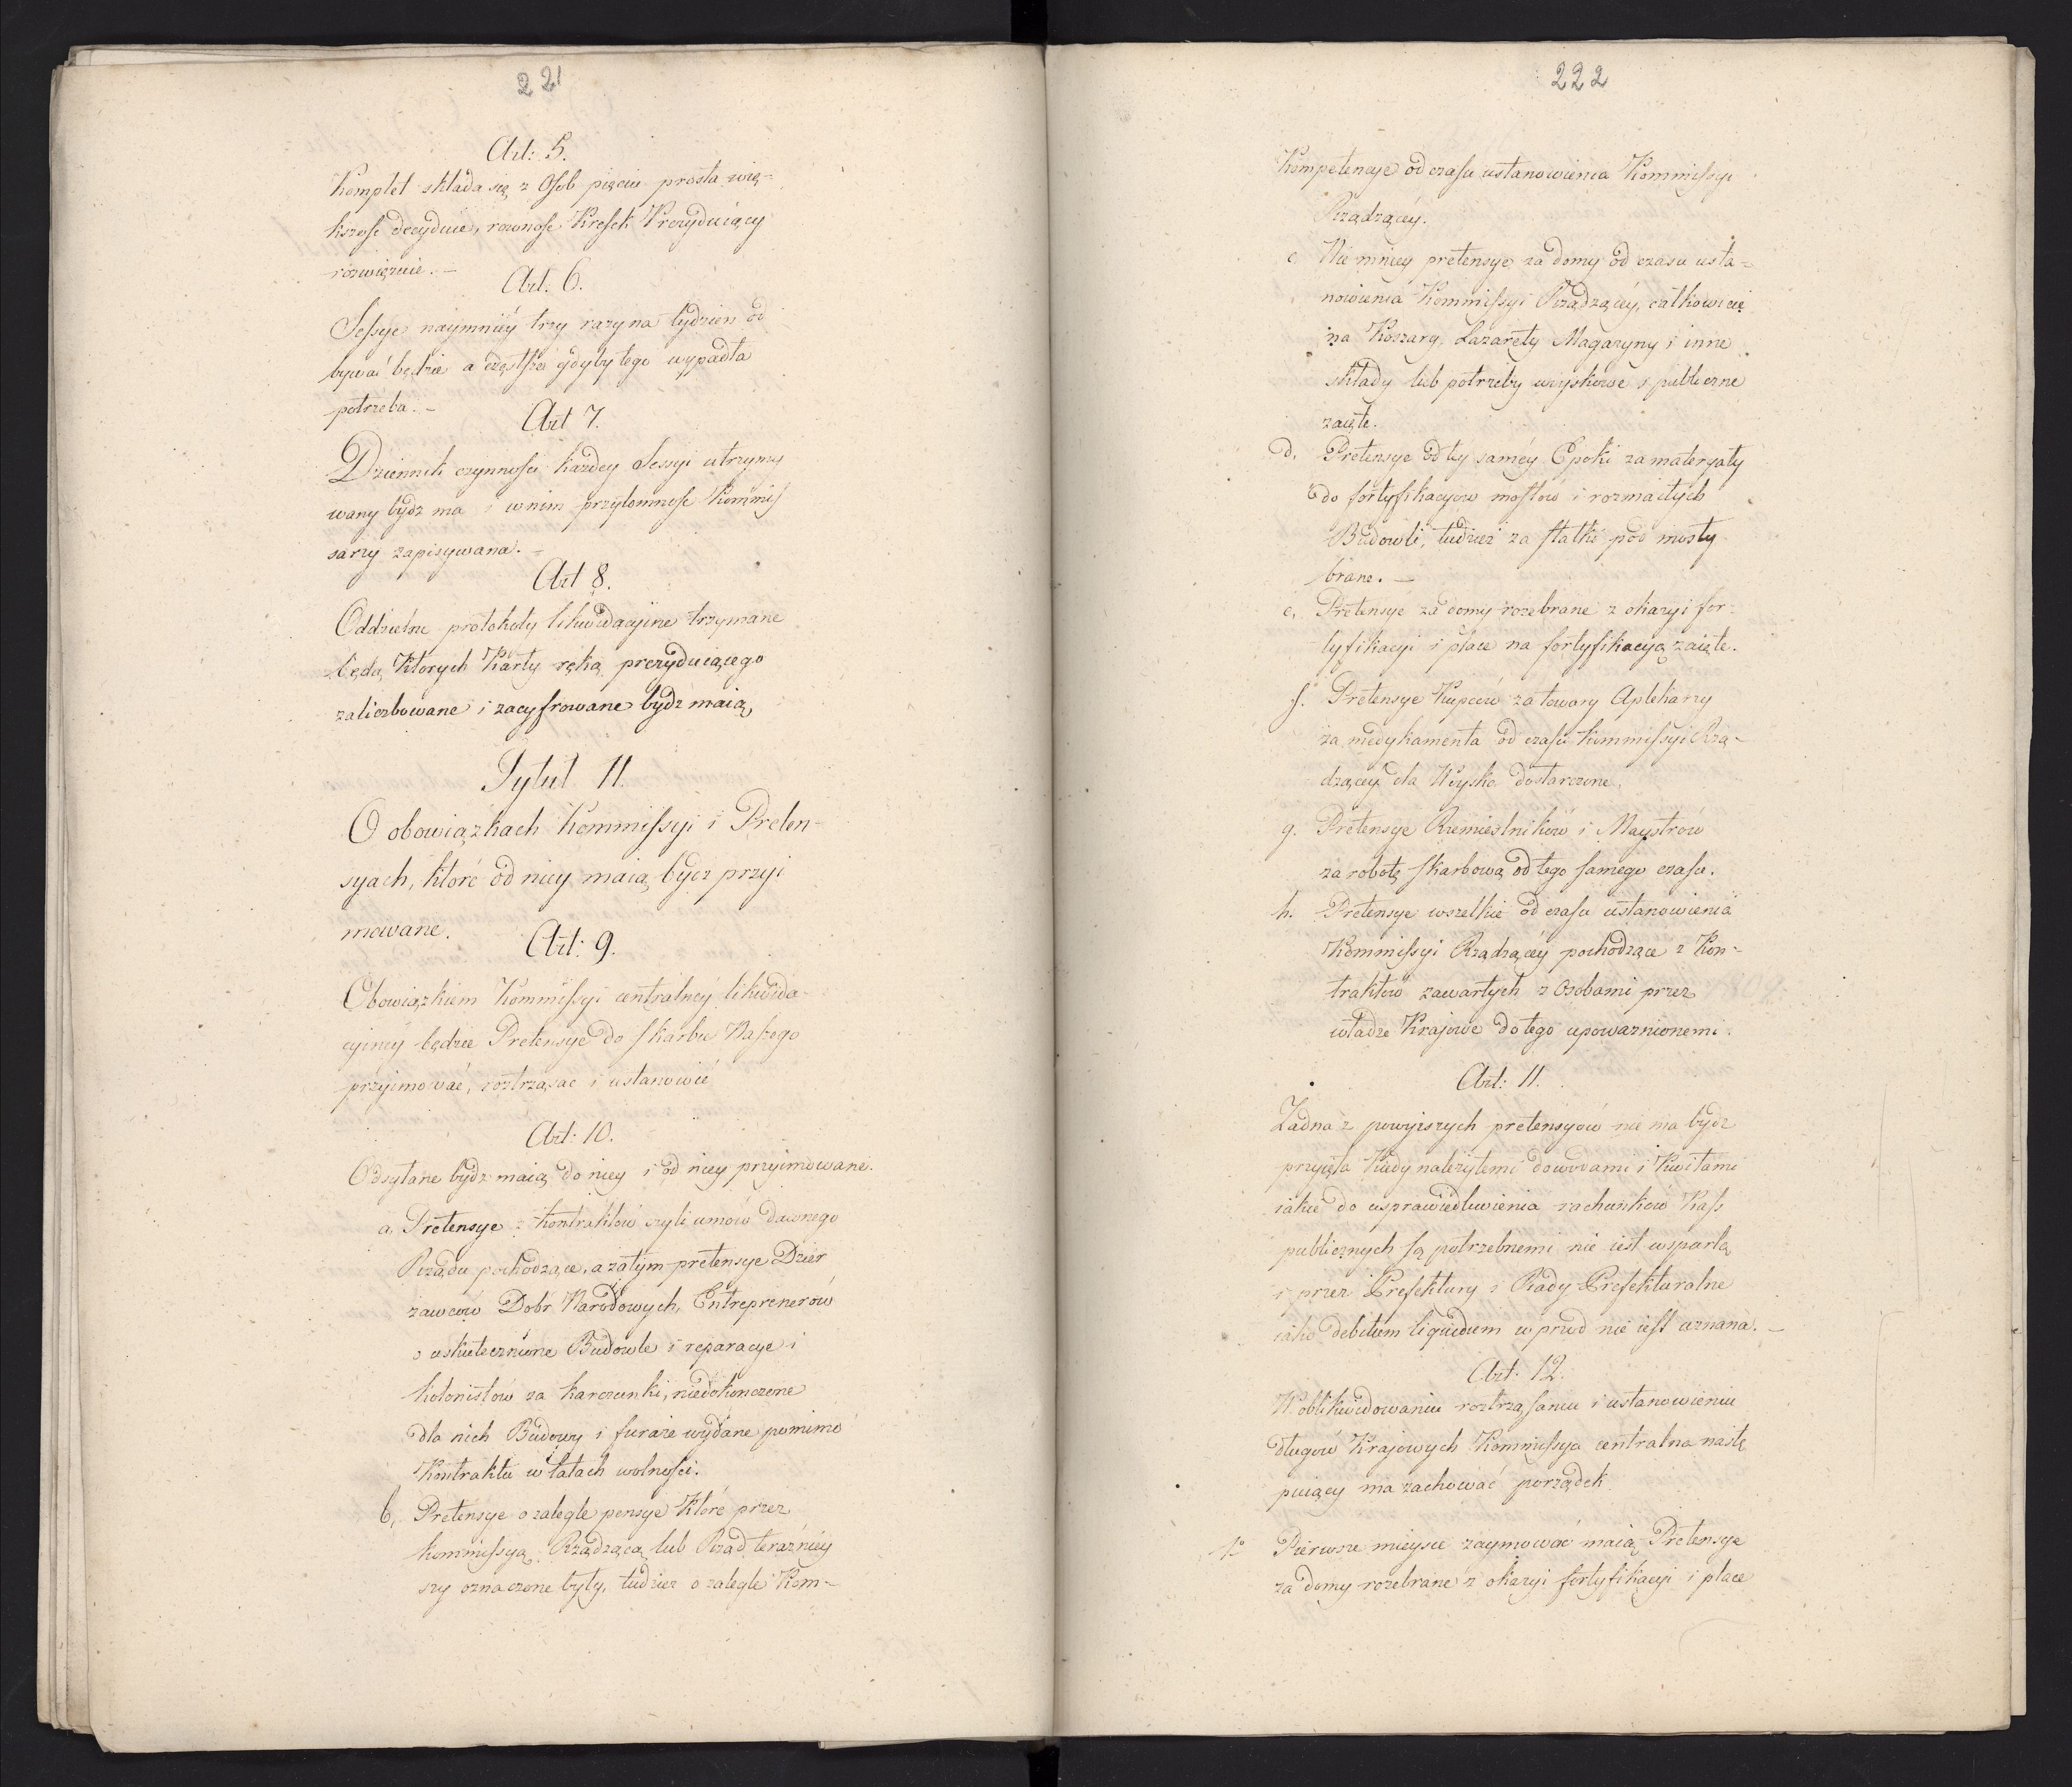 221
Art: 5.
Komplet składa się z Osob pięciu prosta wię-
kszosc decyduie, rownosc Kresek Prezyduiący
rozwiązuie. –
Art. 6.
Sessye naymniéy trzy razy na tydzien od
bywać będzie a częsthe gdyby tego wypadła
potrzeba. –
Art 7.
Dziennik czynności każdey Sessyi utrzymy
wany bydz ma i w nim przytomnosc Kommis
sarzy zapisywana. –
Art 8.
Oddzielne protokuły likwidacyine trzymane
będą Ktorych Karty ręką prezyduiącego
zaliczbowane i zacyfrowane bydz maią,
Tytuł II.
O obowiązkach Kommissyi i Preten-
syach, które od niey maią bydz przyi
mowane.
Art: 9.
Obowiązkiem Kommissyi centralnéy likwida-
cyinéy będzie Pretensye do skarbu Naszego
przyimować, roztrząsac i ustanowić
Art: 10.
Odsyłane bydz maią do niey i od niey przyimowane.
a, Pretensye z kontraktów czyli umów dawnego
Rządu pochodzące, a zatym pretensye Dzier
zawców Dobr Narodowych, Entreprenerów
o uskutecznione Budowle i reparacye i
kolonistow za karczunki, niedokonczone
dla nich Budowy i furaże wydane pomimo
Kontraktu w latach wolności.
b, Pretensye o zaległe pensye Które przez
kommissyą Rządzącą lub Rząd teraźniéy
szy oznaczone były, tudzież o zaległe Kom-
222
Kompetencye od czasu ustanowienia Kommissyi
Rządzącéy.
c Nie mniey pretensye za domy od czasu usta-
nowienia Kommissyi Rządzącéy, całkowicie
na Koszary, Lazarety Magazyny i inne
składy lub potrzeby woyskowe i publiczne
zaięte.
d. Pretensye od téy saméy Epoki za materyały
do fortyfikacyów mostów i rozmaitych
Budowli, tudzież za statki pod mosty
brane. –
e. Pretensye za domy rozebrane z okazyi for-
tyfikacyi i place na fortyfikacyą zaięte.
f. Pretensye Kupców za towary Aptekarzy
za medykamenta od czasu kommissyi Rzą-
dzącéy dla Woyska dostarczone.
g. Pretensye Rzemieslników i Maystrów
za robotę skarbową od tego samego czasu.
h. Pretensye wszelkie od czasu ustanowienia
Kommissyi Rządzącéy pochodzące z Kon-
traktow zawartych z Osobami przez
władze Krajowe do tego upowaznionemi.
Art: 11.
Żadna z powyższych pretensyów nie ma bydz
przyięta Kiedy należytemi dowodami i Kwitami
iakie do usprawiedliwienia rachunków Kass
publicznych są potrzebnemi nie iest wspartą
i przez Prefektury i Rady Prefekturalne
iako debitum liquidum w przód nie iest uznana. –
Art: 12.
W oblikwidowaniu roztrząsaniu i ustanowieniu
długów Krajowych Kommissya centralna nastę
puiący ma zachować porządek
1° Pierwsze mieysce zaymować maią Pretensye
za domy rozebrane z okazyi fortyfikacyi i place